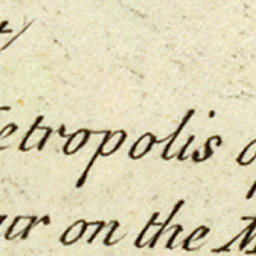 etropolis o
ur on the M